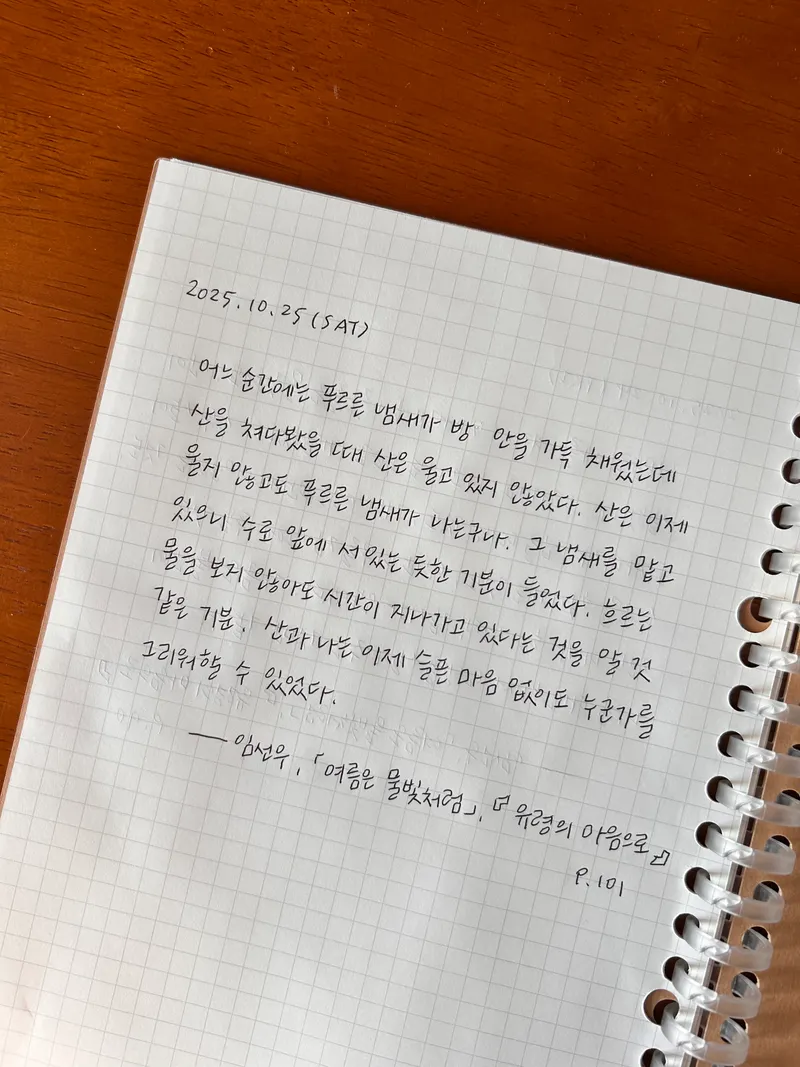 2025. 10. 25 (SAT)
어느 순간에는 푸르른 냄새가 방 안을 가득 채웠는데
산을 쳐다봤을 때 산은 울고 있지 않았다. 산은 이제
울지 않고도 푸르른 냄새가 나는구나. 그 냄새를 맡고
있으니 수로 앞에 서 있는 듯한 기분이 들었다. 흐르는
물을 보지 않아도 시간이 지나가고 있다는 것을 알 것
같은 기분. 산과 나는 이제 슬픈 마음 없이도 누군가를
그리워할 수 있었다.
— 임선우, 「여름은 물빛처럼」, 『유령의 마음으로』
P. 101